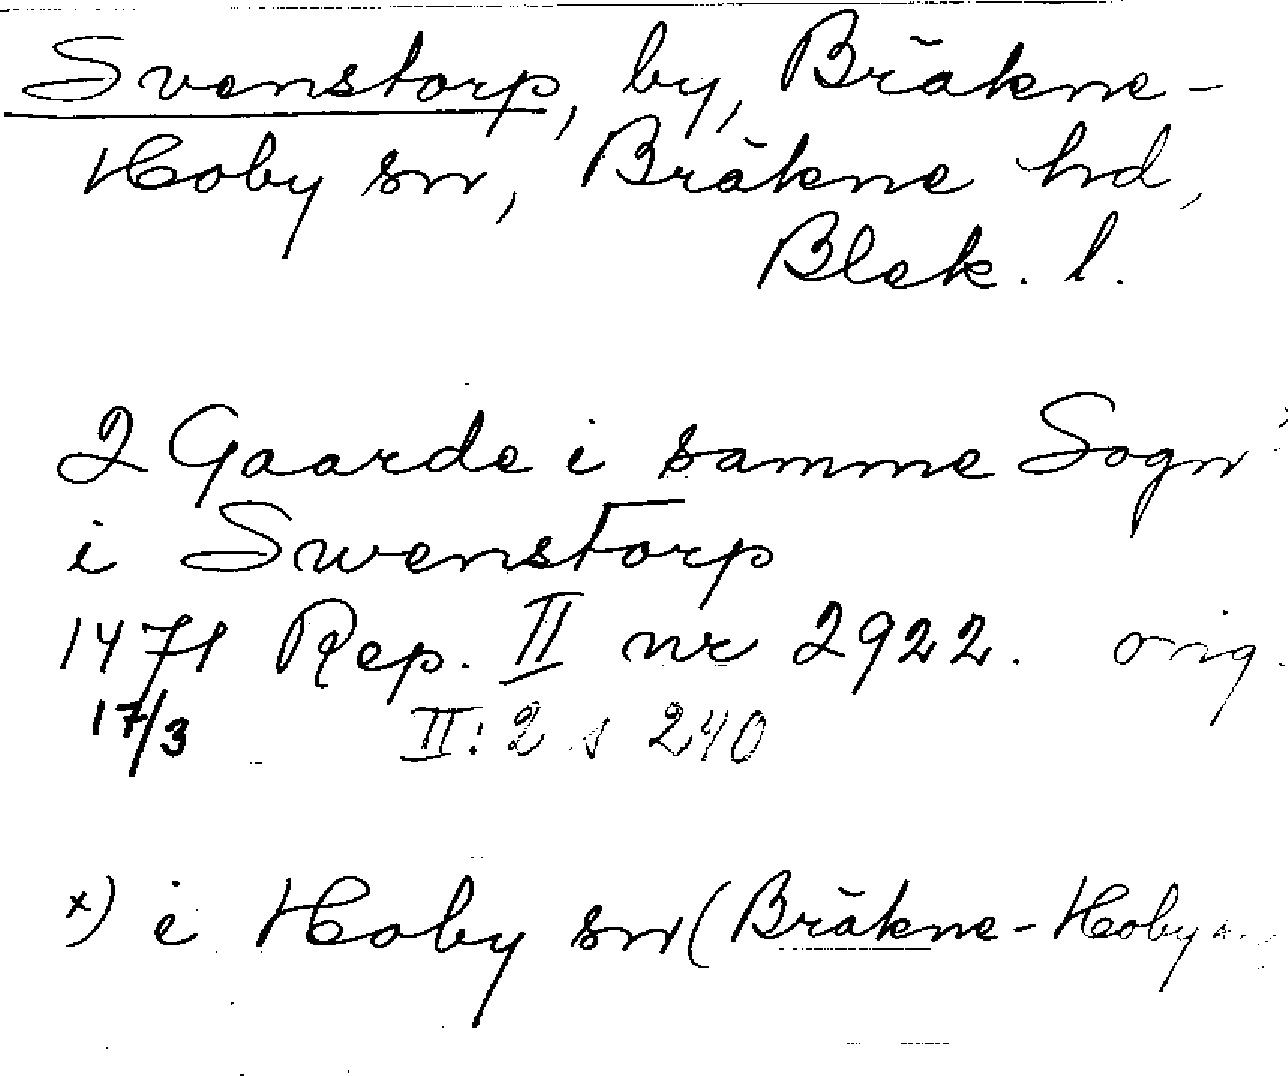 Svenstorp, by, Bräkne-
Hoby sn, Bräkne hd,
Blek. l.
2 Gaarde i samme Sogn
i Swenstorp
1471 Rep. II nr 2922. orig.
17/3 II:2 s 240
x) i Hoby sn (Bräkne-Hoby